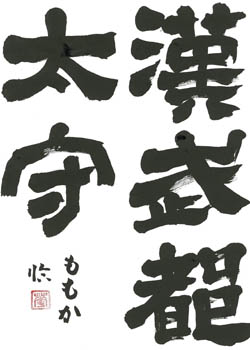 漢武都
太守
ももか
臨